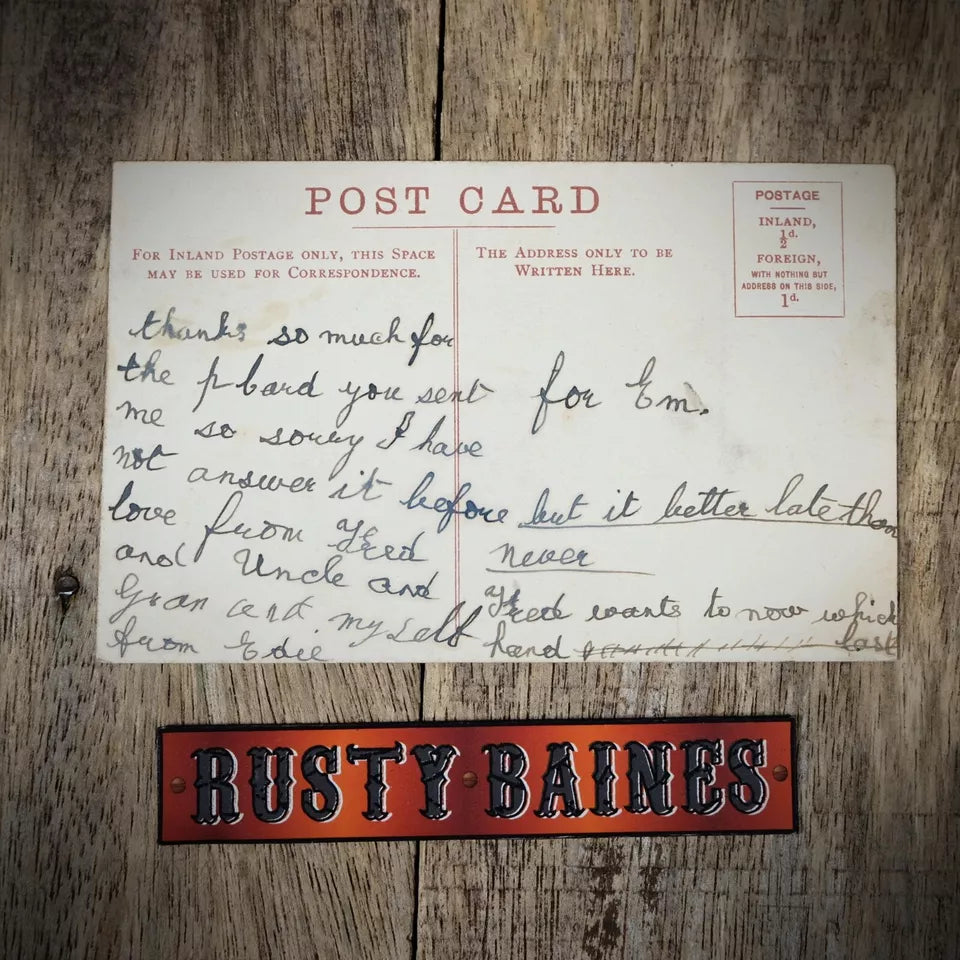 POST CARD
FOR INLAND POSTAGE ONLY, THIS SPACE
MAY BE USED FOR CORRESPONDENCE.
thanks so much for
the p bard you sent
me so sorry I have
not answer it before
love from Fred
and Uncle and
Gran and myself
from Edie
THE ADDRESS ONLY TO BE
WRITTEN HERE.
for Em.
but it better late than
never
Fred wants to now which
hand last
POSTAGE
INLAND,
½d.
FOREIGN,
WITH NOTHING BUT
ADDRESS ON THIS SIDE,
1d.
RUSTY BAINES